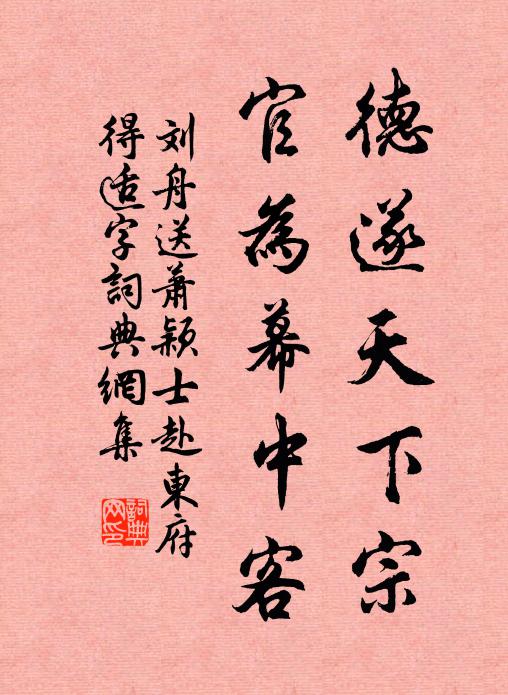 德遂天下宗
官為幕中客
刘舟送萧颖士赴東府
得适字詞典網集
詞典
网印